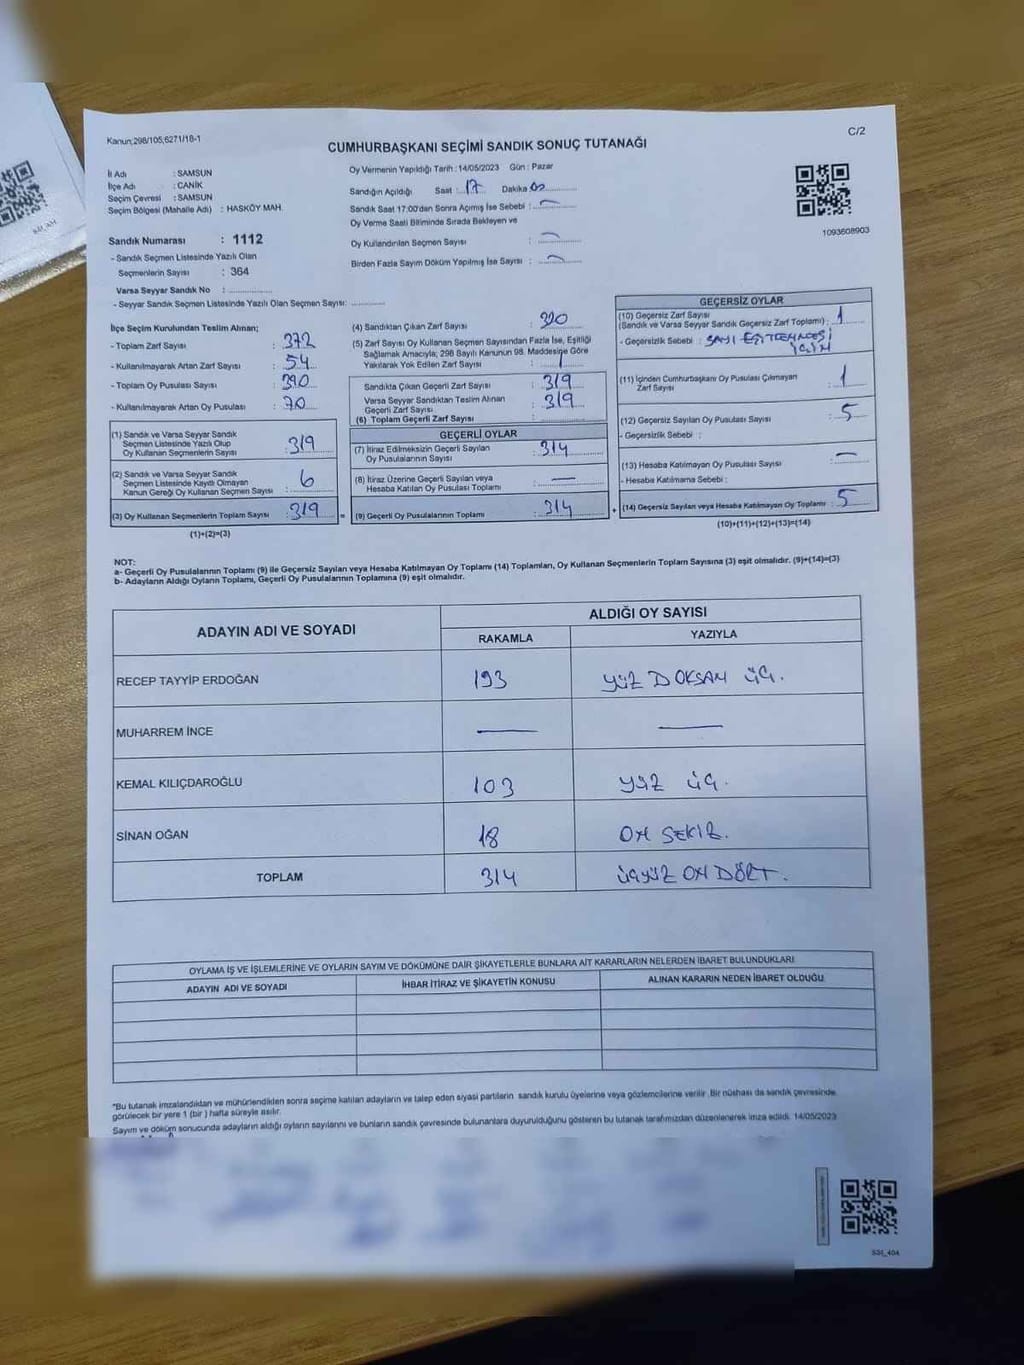 Kanun;298/105,6271/18-1
C/2
CUMHURBAŞKANI SEÇİMİ SANDIK SONUÇ TUTANAĞI
İl Adı : SAMSUN
İlçe Adı : CANİK
Seçim Çevresi : SAMSUN
Seçim Bölgesi (Mahalle Adı) : HASKÖY MAH.
Oy Vermenin Yapıldığı Tarih : 14/05/2023 Gün : Pazar
Sandığın Açıldığı Saat : 17 Dakika 00
Sandık Saat 17:00'dan Sonra Açılmış İse Sebebi :
Oy Verme Saati Bitiminde Sırada Bekleyen ve
Oy Kullandırılan Seçmen Sayısı :
Birden Fazla Sayım Döküm Yapılmış İse Sayısı :
1093608903
Sandık Numarası : 1112
- Sandık Seçmen Listesinde Yazılı Olan
Seçmenlerin Sayısı : 364
Varsa Seyyar Sandık No :
- Seyyar Sandık Seçmen Listesinde Yazılı Olan Seçmen Sayısı:
İlçe Seçim Kurulundan Teslim Alınan;
- Toplam Zarf Sayısı : 372
- Kullanılmayarak Artan Zarf Sayısı : 54
- Toplam Oy Pusulası Sayısı : 390
- Kullanılmayarak Artan Oy Pusulası : 70
(1) Sandık ve Varsa Seyyar Sandık
Seçmen Listesinde Yazılı Olup
Oy Kullanan Seçmenlerin Sayısı : 319
(2) Sandık ve Varsa Seyyar Sandık
Seçmen Listesinde Kayıtlı Olmayan
Kanun Gereği Oy Kullanan Seçmen Sayısı : 6
(3) Oy Kullanan Seçmenlerin Toplam Sayısı : 319 =
(1)+(2)=(3)
(4) Sandıktan Çıkan Zarf Sayısı : 320
(5) Zarf Sayısı Oy Kullanan Seçmen Sayısından Fazla İse, Eşitliği
Sağlamak Amacıyla; 298 Sayılı Kanunun 98. Maddesine Göre
Yakılarak Yok Edilen Zarf Sayısı : 1
Sandıkta Çıkan Geçerli Zarf Sayısı : 319
Varsa Seyyar Sandıktan Teslim Alınan
Geçerli Zarf Sayısı : 319
(6) Toplam Geçerli Zarf Sayısı :
GEÇERLİ OYLAR
(7) İtiraz Edilmeksizin Geçerli Sayılan
Oy Pusulalarının Sayısı : 314
(8) İtiraz Üzerine Geçerli Sayılan veya
Hesaba Katılan Oy Pusulası Toplamı : —
(9) Geçerli Oy Pusulalarının Toplamı : 314 +
GEÇERSİZ OYLAR
(10) Geçersiz Zarf Sayısı
(Sandık ve Varsa Seyyar Sandık Geçersiz Zarf Toplamı) : 1
- Geçersizlik Sebebi : SAYI EŞİTLENMESİ
İÇİN
(11) İçinden Cumhurbaşkanı Oy Pusulası Çıkmayan
Zarf Sayısı : 1
(12) Geçersiz Sayılan Oy Pusulası Sayısı : 5
- Geçersizlik Sebebi :
(13) Hesaba Katılmayan Oy Pusulası Sayısı : —
- Hesaba Katılmama Sebebi :
(14) Geçersiz Sayılan veya Hesaba Katılmayan Oy Toplamı : 5
(10)+(11)+(12)+(13)=(14)
NOT:
a- Geçerli Oy Pusulalarının Toplamı (9) ile Geçersiz Sayılan veya Hesaba Katılmayan Oy Toplamı (14) Toplamları, Oy Kullanan Seçmenlerin Toplam Sayısına (3) eşit olmalıdır. (9)+(14)=(3)
b- Adayların Aldığı Oyların Toplamı, Geçerli Oy Pusulalarının Toplamına (9) eşit olmalıdır.
ADAYIN ADI VE SOYADI
ALDIĞI OY SAYISI
RAKAMLA YAZIYLA
RECEP TAYYİP ERDOĞAN 193 YÜZ DOKSAN ÜÇ.
MUHARREM İNCE — —
KEMAL KILIÇDAROĞLU 103 YÜZ ÜÇ.
SİNAN OĞAN 18 ON SEKİZ.
TOPLAM 314 ÜÇYÜZ ON DÖRT.
OYLAMA İŞ VE İŞLEMLERİNE VE OYLARIN SAYIM VE DÖKÜMÜNE DAİR ŞİKAYETLERLE BUNLARA AİT KARARLARIN NELERDEN İBARET BULUNDUKLARI
ADAYIN ADI VE SOYADI İHBAR İTİRAZ VE ŞİKAYETİN KONUSU ALINAN KARARIN NEDEN İBARET OLDUĞU
*Bu tutanak imzalandıktan ve mühürlendikten sonra seçime katılan adayların ve talep eden siyasi partilerin sandık kurulu üyelerine veya gözlemcilerine verilir. Bir nüshası da sandık çevresinde
görülecek bir yere 1 (bir ) hafta süreyle asılır.
Sayım ve döküm sonucunda adayların aldığı oyların sayılarını ve bunların sandık çevresinde bulunanlara duyurulduğunu gösteren bu tutanak tarafımızdan düzenlenerek imza edildi. 14/05/2023
S3I_404